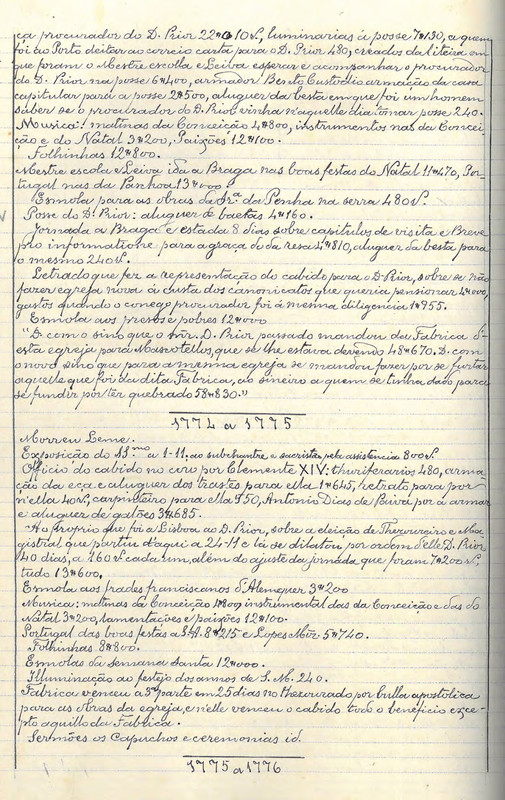 ça procurador do D. Prior 22#010 rs., luminarias á posse 7#130, a quem
foi ao Porto deitar ao correio carta para o D. Prior 480, creados da liteira em
que foram o Mestre escolla e Leiva esperar e acompanhar o procurador
do D. Prior na posse 6#400, armador Bento Custodio armação da casa
capitular para a posse 2#500, aluguer da besta em que foi um homem
saber se o procurador do D. Prior vinha n'aquelle dia tomar posse 240.
Musica: matinas da Conceição 4#800, instrumentos nas da Concei-
ção e do Natal 3#200, Paixões 12#100.
Folhinhas 12#800.
Mestre escola e Leiva ida a Braga nas boas festas do Natal 11#470, Por-
tugal nas da Panhoa 13#000
Esmola para as obras da Sr.ª da Penha na serra 480 rs.
Posse do D. Prior: aluguer de baetas 4#160.
Jornada a Braga e estada 8 dias sobre capitulos de visita e Breve
pro informatione para a graça do da resa 4#810, aluguer da besta para
o mesmo 240 rs.
Letrado que fez a representação do cabido para o D. Prior, sobre se não
fazer egreja nova á custa dos canonicatos que queria pensionar 4#000,
gastos quando o conego procurador foi á mesma diligencia 1#955.
Esmola aos presos e pobres 12#000
"D. com o sino que o snr. D. Prior passado mandou da Fabrica d'
esta egreja para Mascotellos, que se lhe estava devendo 48#670. D. com
o novo sino que para a mesma egreja se mandou fazer por se furtar
aquelle que foi da dita Fabrica, ao sineiro a quem se tinha dado para
se fundir por ter quebrado 58#830."
1774 a 1775
Morreu Leme.
Exposição do SS.mo a 1-11; ao subchantre e sacristas pela assistencia 800 rs.
Officio do cabido no coro por Clemente XIV: thuriferarios 480, arma-
ção da eça e aluguer dos trastes para ella 1#645, retrato para pôr
n'ella 40 rs., carpinteiro para ella 750, Antonio Dias de Paiva por a armar
e aluguer de galões 3#685.
Ao proprio que foi a Lisboa ao D. Prior, sobre a eleição de Thezoureiro e Ma-
gistral que partiu d'aqui a 24-11 e lá se dilatou por ordem d'elle D. Prior
40 dias, a 160 rs. cada um, além do ajuste da jornada que foram 7#200 rs.
tudo 13#600.
Esmola aos frades franciscanos d'Alemquer 3#200
Musica: matinas da Conceição 4#800 instrumental das da Conceição e das do
Natal 3#200, lamentações e paixões 12#100.
Portugal das boas festas a S. A. 8#215 e Lopes Mir 5#740.
Folhinhas 8#800.
Esmolas da Semana Santa 12#000.
Illuminação ao festejo dos annos de S. M. 240.
Fabrica venceu a 3ª parte em 25 dias no Thezourado por bulla apostolica
para as obras da egreja, e n'elle venceu o cabido todo o beneficio exce-
pto aquillo da Fabrica.
Sermões os Capuchos e ceremonias id.
1775 a 1776